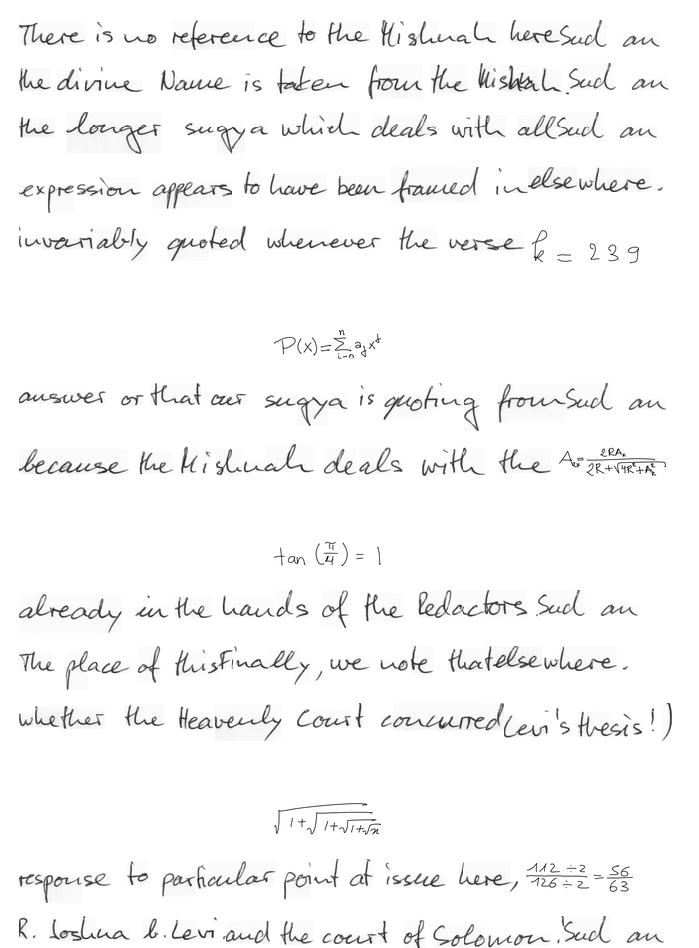 There is no reference to the Mishnah here Sud an
the divine Name is taken from the Mishnah. Sud an
the longer sugya which deals with all Sud an
expression appears to have been framed in elsewhere.
invariably quoted whenever the verse k = 239
P(x)=∑_{i=0}^{n} a_j x^j
answer or that our sugya is quoting from Sud an
because the Mishnah deals with the A_{2k}=\frac{2RA_k}{2R+\sqrt{4R^2+A_k^2}}
tan (π/4) = 1
already in the hands of the Redactors. Sud an
The place of this Finally, we note that elsewhere.
whether the Heavenly Court concurred (Levi's thesis!)
\sqrt{1+\sqrt{1+\sqrt{1+\sqrt{x}}}}
response to particular point at issue here, \frac{112÷2}{126÷2}=\frac{56}{63}
R. Joshua b. Levi and the court of Solomon.' Sud an